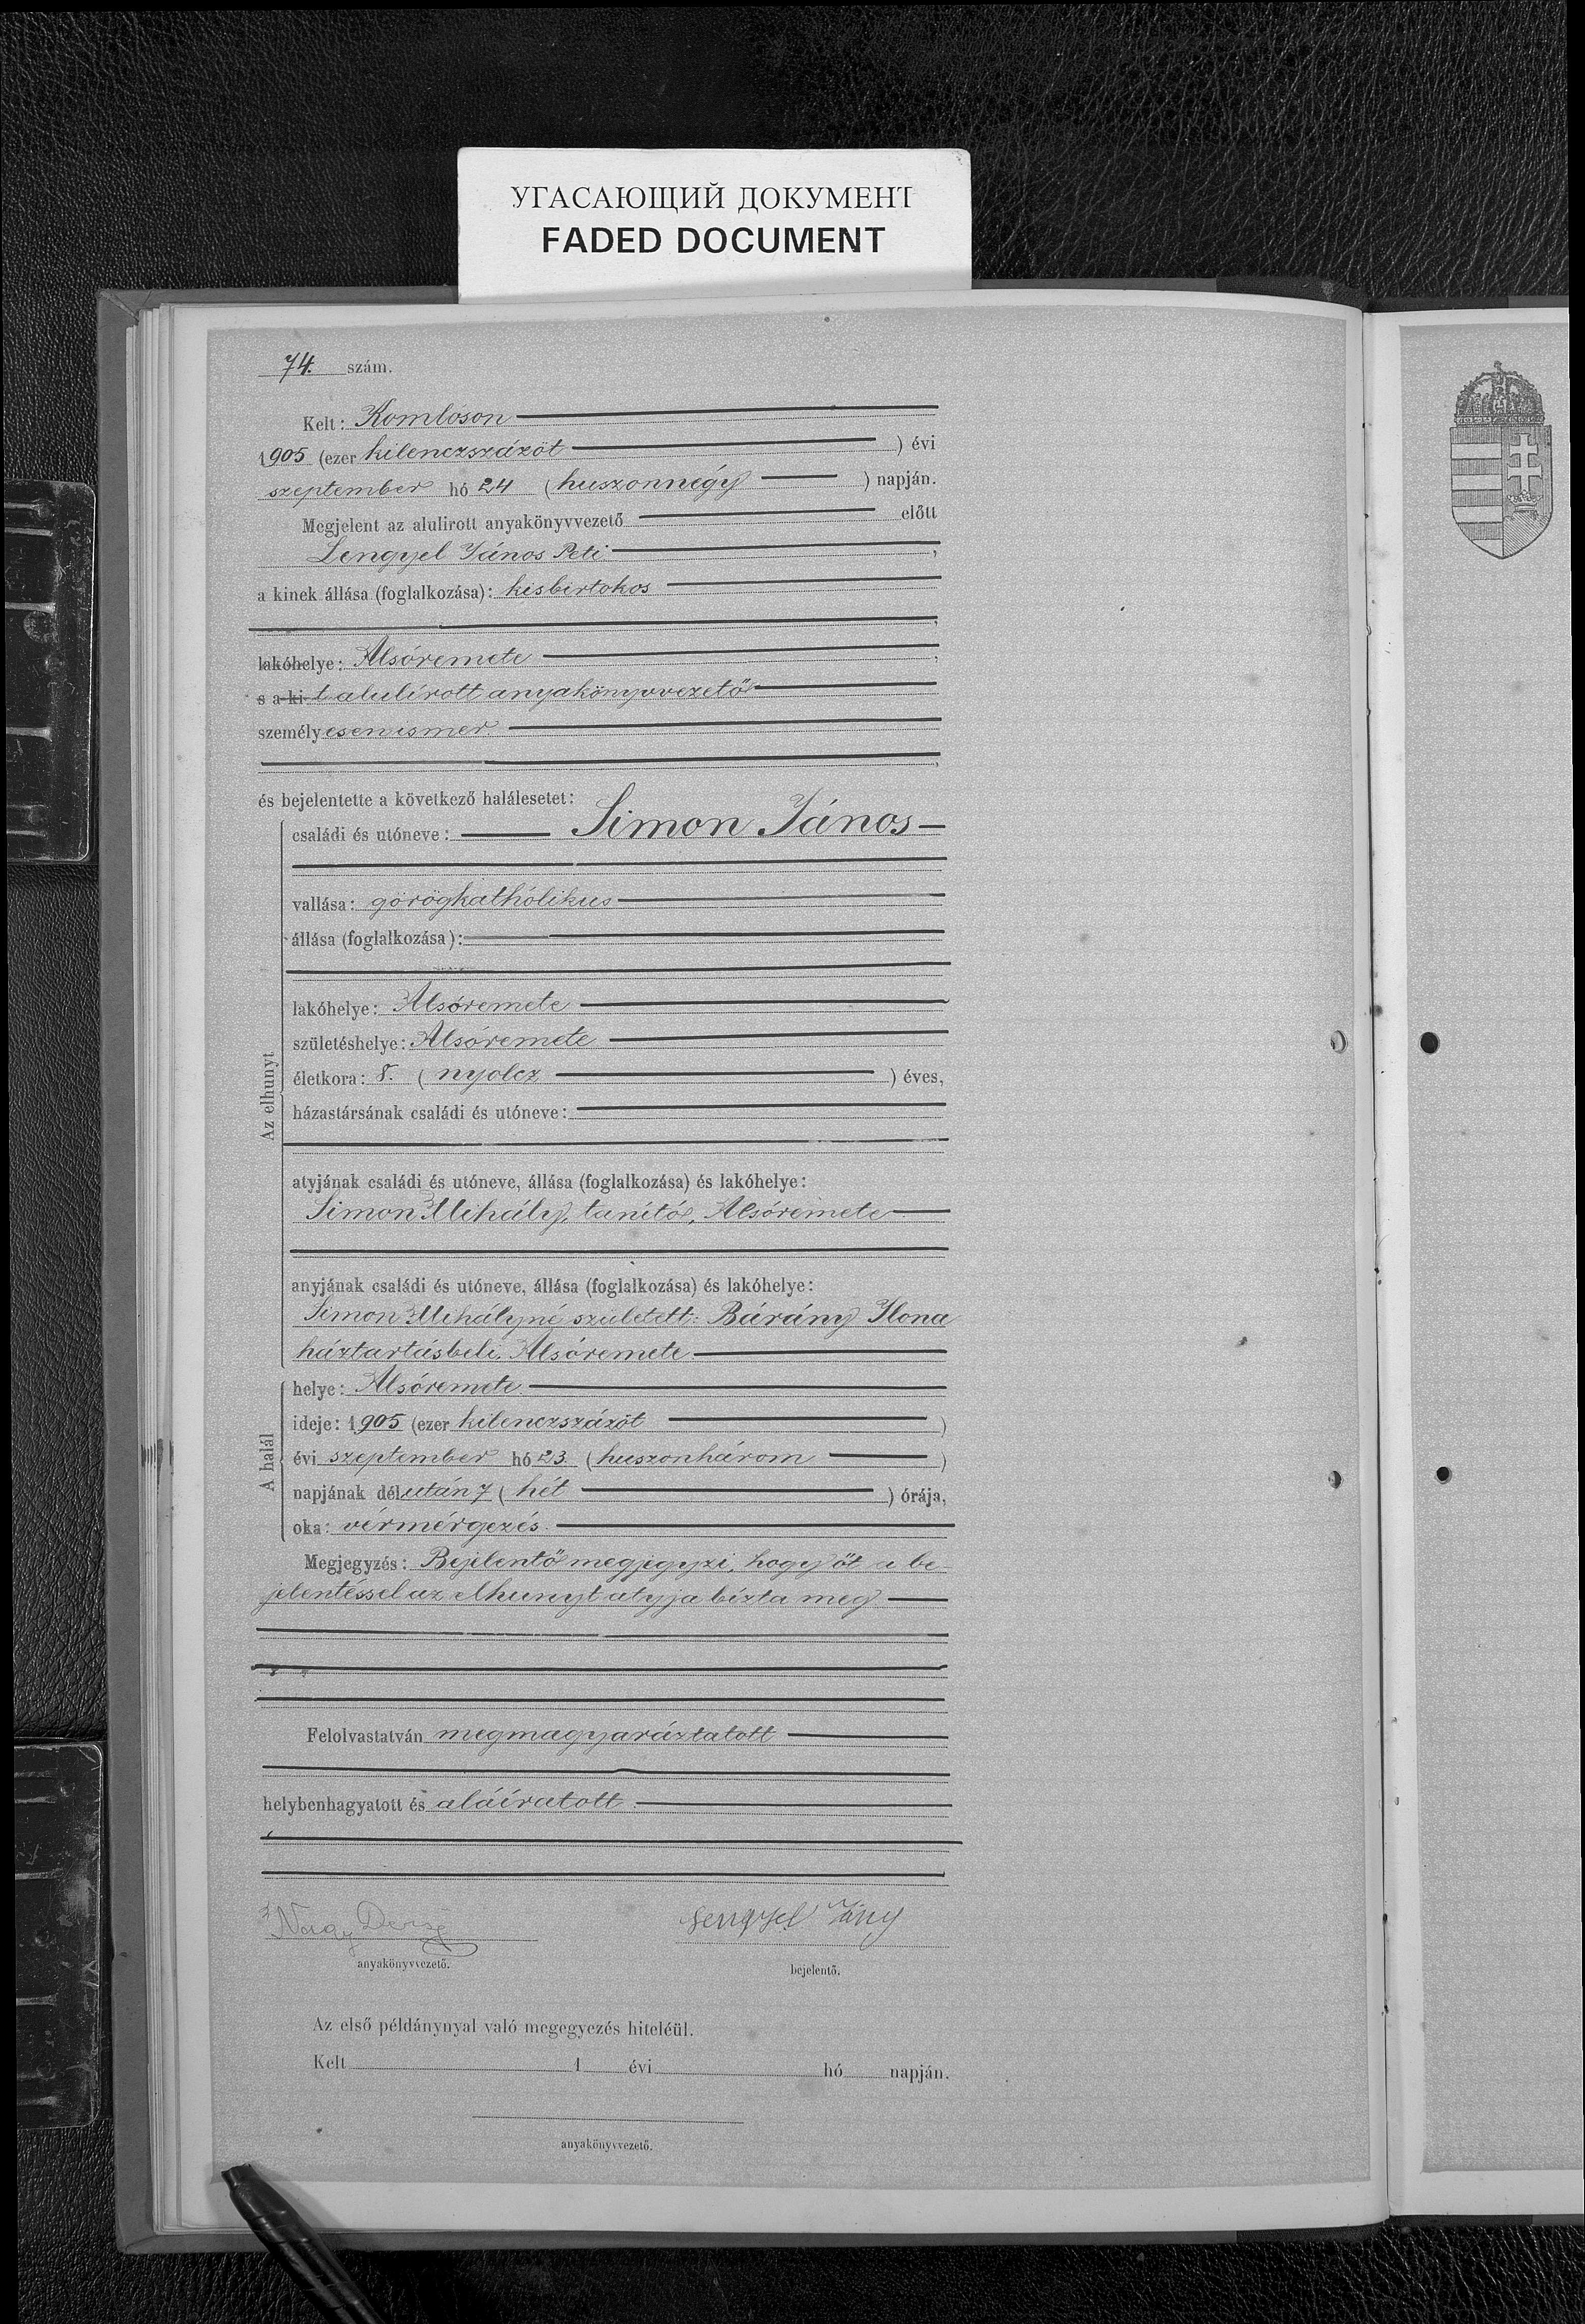 УГАСАЮЩИЙ ДОКУМЕНТ
FADED DOCUMENT
74. szám.
Kelt: Komlóson
1905 (ezer kilenczszázöt ) évi
szeptember hó 24 (huszonnégy ) napján.
Megjelent az alulirott anyakönyvvezető előtt
Lengyel János Peti ,
a kinek állása (foglalkozása): kisbirtokos
,
lakóhelye: Alsóremete ,
s a ki t alulírott anyakönyvvezető
személyesen ismer
,
és bejelentette a következő halálesetet:
Az elhunyt
családi és utóneve: Simon János
vallása: görögkathólikus
állása (foglalkozása):
lakóhelye: Alsóremete
születéshelye: Alsóremete
életkora: 8. (nyolcz ) éves,
házastársának családi és utóneve:
atyjának családi és utóneve, állása (foglalkozása) és lakóhelye:
Simon Mihály, tanító, Alsóremete
anyjának családi és utóneve, állása (foglalkozása) és lakóhelye:
Simon Mihályné született: Bárány Ilona
háztartásbeli, Alsóremete
A halál
helye: Alsóremete
ideje: 1905 (ezer kilenczszázöt )
évi szeptember hó 23. (huszonhárom )
napjának délután 7 (hét ) órája,
oka: vérmérgezés.
Megjegyzés: Bejelentő megjegyzi, hogy őt a be-
jelentéssel az elhunyt atyja bízta meg
Felolvastatván megmagyaráztatott
helybenhagyatott és aláíratott.
Nagy Lengyel Jány
anyakönyvvezető. bejelentő.
Az első példánynyal való megegyezés hiteléül.
Kelt 1 évi hó napján.
anyakönyvvezető.